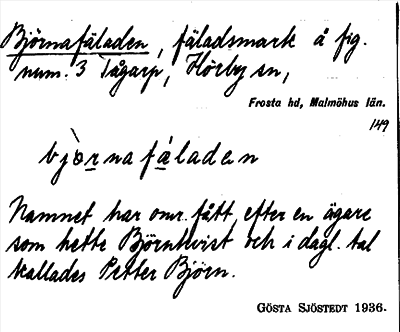 Björnafäladen, fäladsmark å fig.
num. 3 Tågarp, Hörby sn,
Frosta hd, Malmöhus län.
149
bjò̱rnafáladen
Namnet har omr. fått efter en ägare
som hette Björnkvist och i dagl. tal
kallades Petter Björn.
GÖSTA SJÖSTEDT 1936.